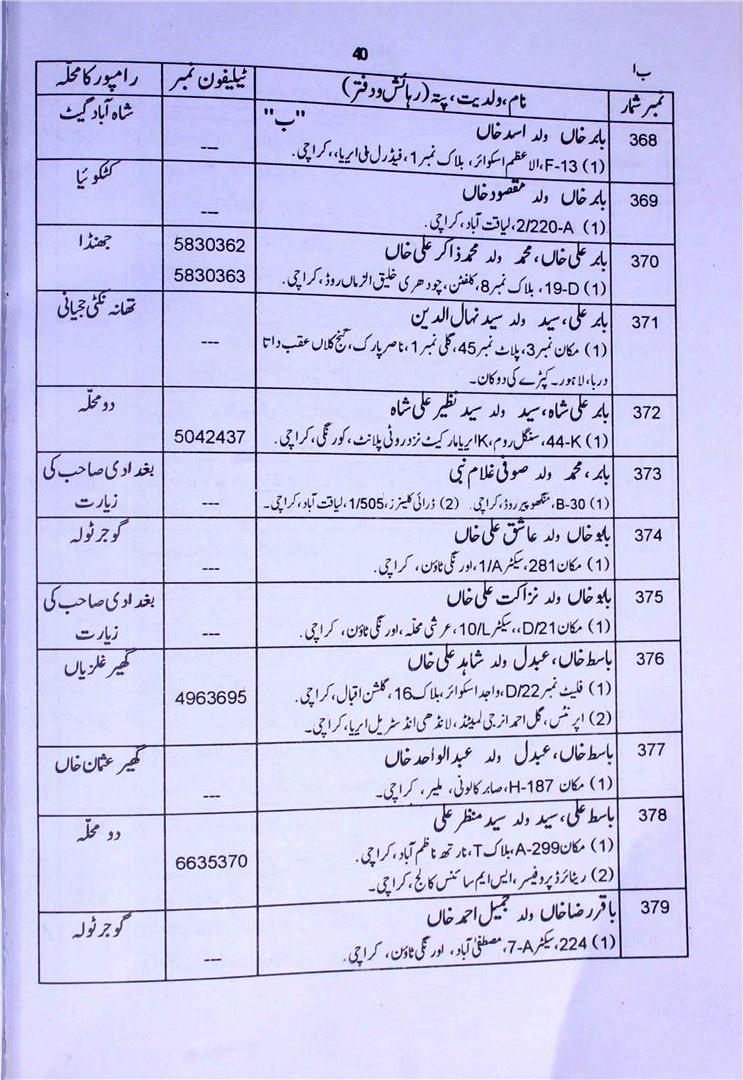 40
ب ا
نمبر شمار نام، ولدیت، پتہ (رہائش و دفتر) ٹیلیفون نمبر رامپور کا محلّہ
"ب"
368 بابر خاں ولد اسد خاں شاہ آباد گیٹ
(1) F-13، الاعظم اسکوائر، بلاک نمبر 1، فیڈرل بی ایریا، کراچی. ---
369 بابر خاں ولد مقصود خاں کٹکوئیا
(1) 2/220-A، لیاقت آباد، کراچی. ---
370 بابر علی خاں، محمد ولد محمد ذاکر علی خاں 5830362 جھنڈا
(1) 19-D، بلاک نمبر 8، کلفٹن، چودھری خلیق الزماں روڈ، کراچی. 5830363
371 بابر علی، سید ولد سید نہال الدین تھانہ
(1) مکان نمبر 3، پلاٹ نمبر 45، گلی نمبر 1، ناصر پارک، گنج کلاں عقب داتا ---
دربار، لاہور۔ کپڑے کی دوکان۔
372 بابر علی شاہ، سید ولد سید نظیر علی شاہ دو محلّہ
(1) 44-K، سنگل روم، K ایریا مارکیٹ نزد روٹی پلانٹ، کورنگی، کراچی. 5042437
373 بابر، محمد ولد صوفی غلام نبی بغدادی صاحب کی
(1) B-30، منگھوپیر روڈ، کراچی. (2) ڈرائی کلینرز، 1/505، لیاقت آباد، کراچی۔ --- زیارت
374 بابو خاں ولد عاشق علی خاں گوجر ٹولہ
(1) مکان 281، سیکٹر 1/A، اورنگی ٹاؤن، کراچی. ---
375 بابو خاں ولد نزاکت علی خاں بغدادی صاحب کی
(1) مکان D/21،، سیکٹر 10/L، عرشی محلّہ، اورنگی ٹاؤن، کراچی. --- زیارت
376 باسط خاں، عبدل ولد شاہد علی خاں گھیر غلزیاں
(1) فلیٹ نمبر D/22، واجد اسکوائر، بلاک 16، گلشن اقبال، کراچی. 4963695
(2) اپرنٹس، گل احمد انرجی لمیٹڈ، لانڈھی انڈسٹریل ایریا، کراچی۔
377 باسط خاں، عبدل ولد عبدالواحد خاں گھیر عثمان خاں
(1) مکان H-187، صابر کالونی، ملیر، کراچی۔ ---
378 باسط علی، سید ولد سید منظر علی دو محلّہ
(1) مکان A-299، بلاک T، نارتھ ناظم آباد، کراچی. 6635370
(2) ریٹائرڈ پروفیسر، ایس ایم سائنس کالج، کراچی۔
379 باقر رضا خاں ولد جمیل احمد خاں گوجر ٹولہ
(1) 224، سیکٹر 7-A، مصطفیٰ آباد، اورنگی ٹاؤن، کراچی. ---